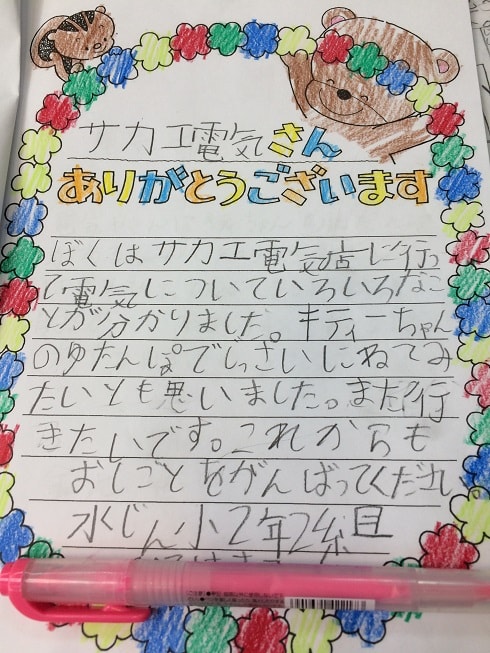 サカエ電気さん
ありがとうございます
ぼくはサカエ電気店に行っ
て電気についていろいろなこ
とが分かりました。キティーちゃん
のゆたんぽでじっさいにねてみ
たいとも思いました。また行
きたいです。これからも
おしごとをがんばってくだれ
水じん小2年2組